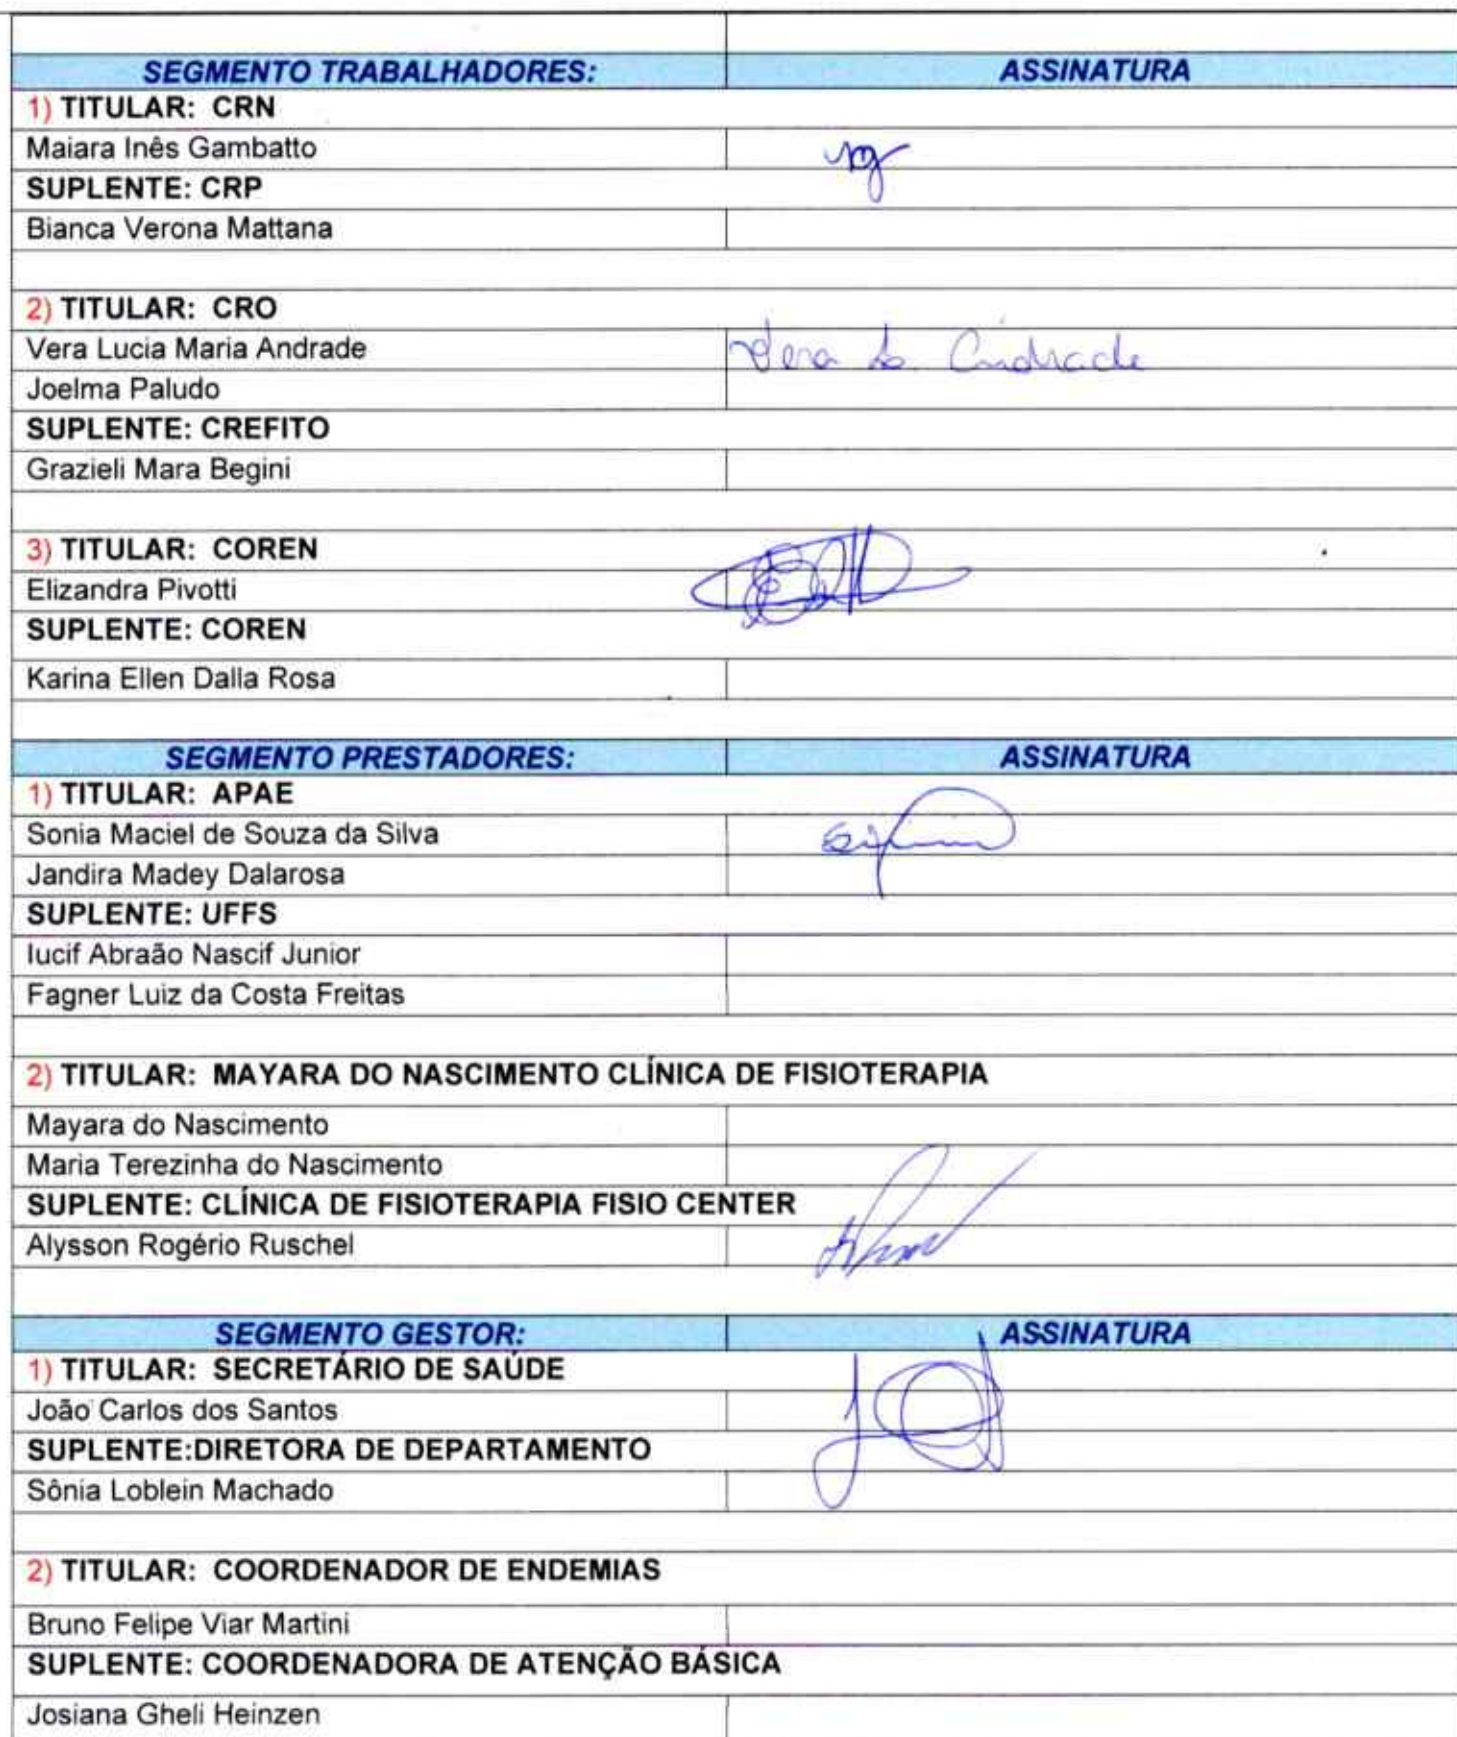 SEGMENTO TRABALHADORES: ASSINATURA
1) TITULAR: CRN
Maiara Inês Gambatto
SUPLENTE: CRP
Bianca Verona Mattana
2) TITULAR: CRO
Vera Lucia Maria Andrade Vera L. Andrade
Joelma Paludo
SUPLENTE: CREFITO
Grazieli Mara Begini
3) TITULAR: COREN
Elizandra Pivotti
SUPLENTE: COREN
Karina Ellen Dalla Rosa
SEGMENTO PRESTADORES: ASSINATURA
1) TITULAR: APAE
Sonia Maciel de Souza da Silva
Jandira Madey Dalarosa
SUPLENTE: UFFS
Iucif Abraão Nascif Junior
Fagner Luiz da Costa Freitas
2) TITULAR: MAYARA DO NASCIMENTO CLÍNICA DE FISIOTERAPIA
Mayara do Nascimento
Maria Terezinha do Nascimento
SUPLENTE: CLÍNICA DE FISIOTERAPIA FISIO CENTER
Alysson Rogério Ruschel
SEGMENTO GESTOR: ASSINATURA
1) TITULAR: SECRETÁRIO DE SAÚDE
João Carlos dos Santos
SUPLENTE:DIRETORA DE DEPARTAMENTO
Sônia Loblein Machado
2) TITULAR: COORDENADOR DE ENDEMIAS
Bruno Felipe Viar Martini
SUPLENTE: COORDENADORA DE ATENÇÃO BÁSICA
Josiana Gheli Heinzen